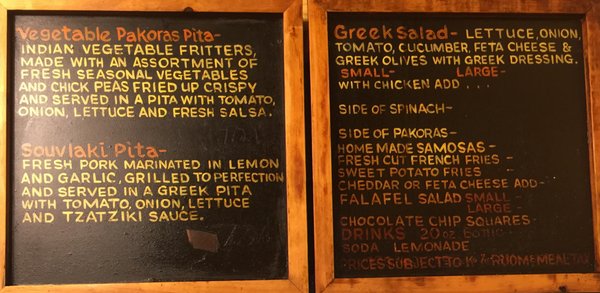 Vegetable Pakoras Pita-
INDIAN VEGETABLE FRITTERS,
MADE WITH AN ASSORTMENT OF
FRESH SEASONAL VEGETABLES
AND CHICK PEAS FRIED UP CRISPY
AND SERVED IN A PITA WITH TOMATO,
ONION, LETTUCE AND FRESH SALSA.
Souvlaki Pita-
FRESH PORK MARINATED IN LEMON
AND GARLIC, GRILLED TO PERFECTION
AND SERVED IN A GREEK PITA
WITH TOMATO, ONION, LETTUCE
AND TZATZIKI SAUCE.
Greek Salad- LETTUCE, ONION,
TOMATO, CUCUMBER, FETA CHEESE &
GREEK OLIVES WITH GREEK DRESSING.
SMALL- LARGE-
WITH CHICKEN ADD ...
SIDE OF SPINACH-
SIDE OF PAKORAS-
HOME MADE SAMOSAS-
FRESH CUT FRENCH FRIES-
SWEET POTATO FRIES
CHEDDAR OR FETA CHEESE ADD-
FALAFEL SALAD SMALL-
LARGE-
CHOCOLATE CHIP SQUARES-
DRINKS 20oz
SODA LEMONADE
PRICES SUBJECT TO MEAL TAX